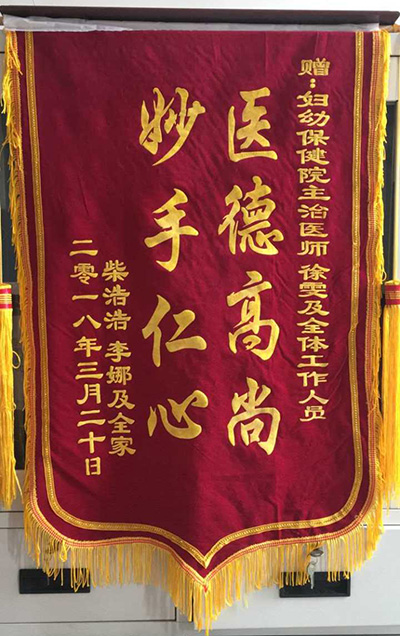 赠：妇幼保健院主治医师 徐雯及全体工作人员
医德高尚
妙手仁心
柴浩浩 李娜及全家
二零一八年三月二十日